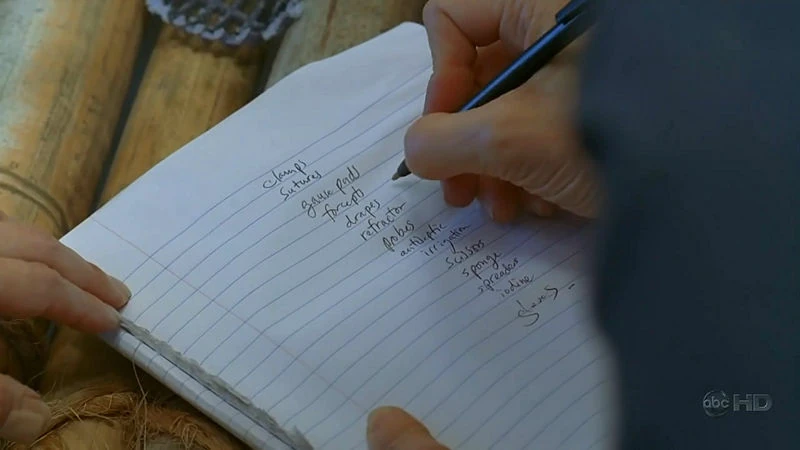 clamps
sutures
gauze padd
forcept
drapes
refractor
probes
antiseptic
irrigation
scissors
sponge
spreaders
iodine
abc HD